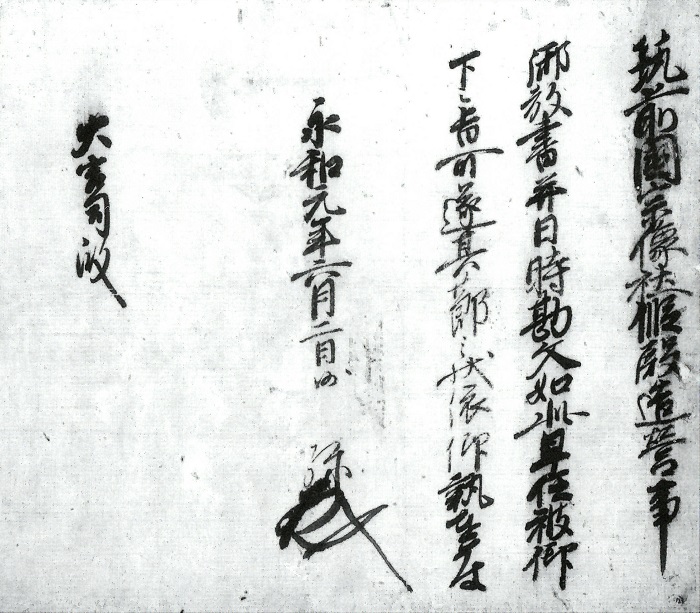 筑前國宗像社假殿造營事
御教書并日時勘文如此早任被仰
下之旨可遂其節之状依仰執達如件
永和元年六月二日
大宮司殿